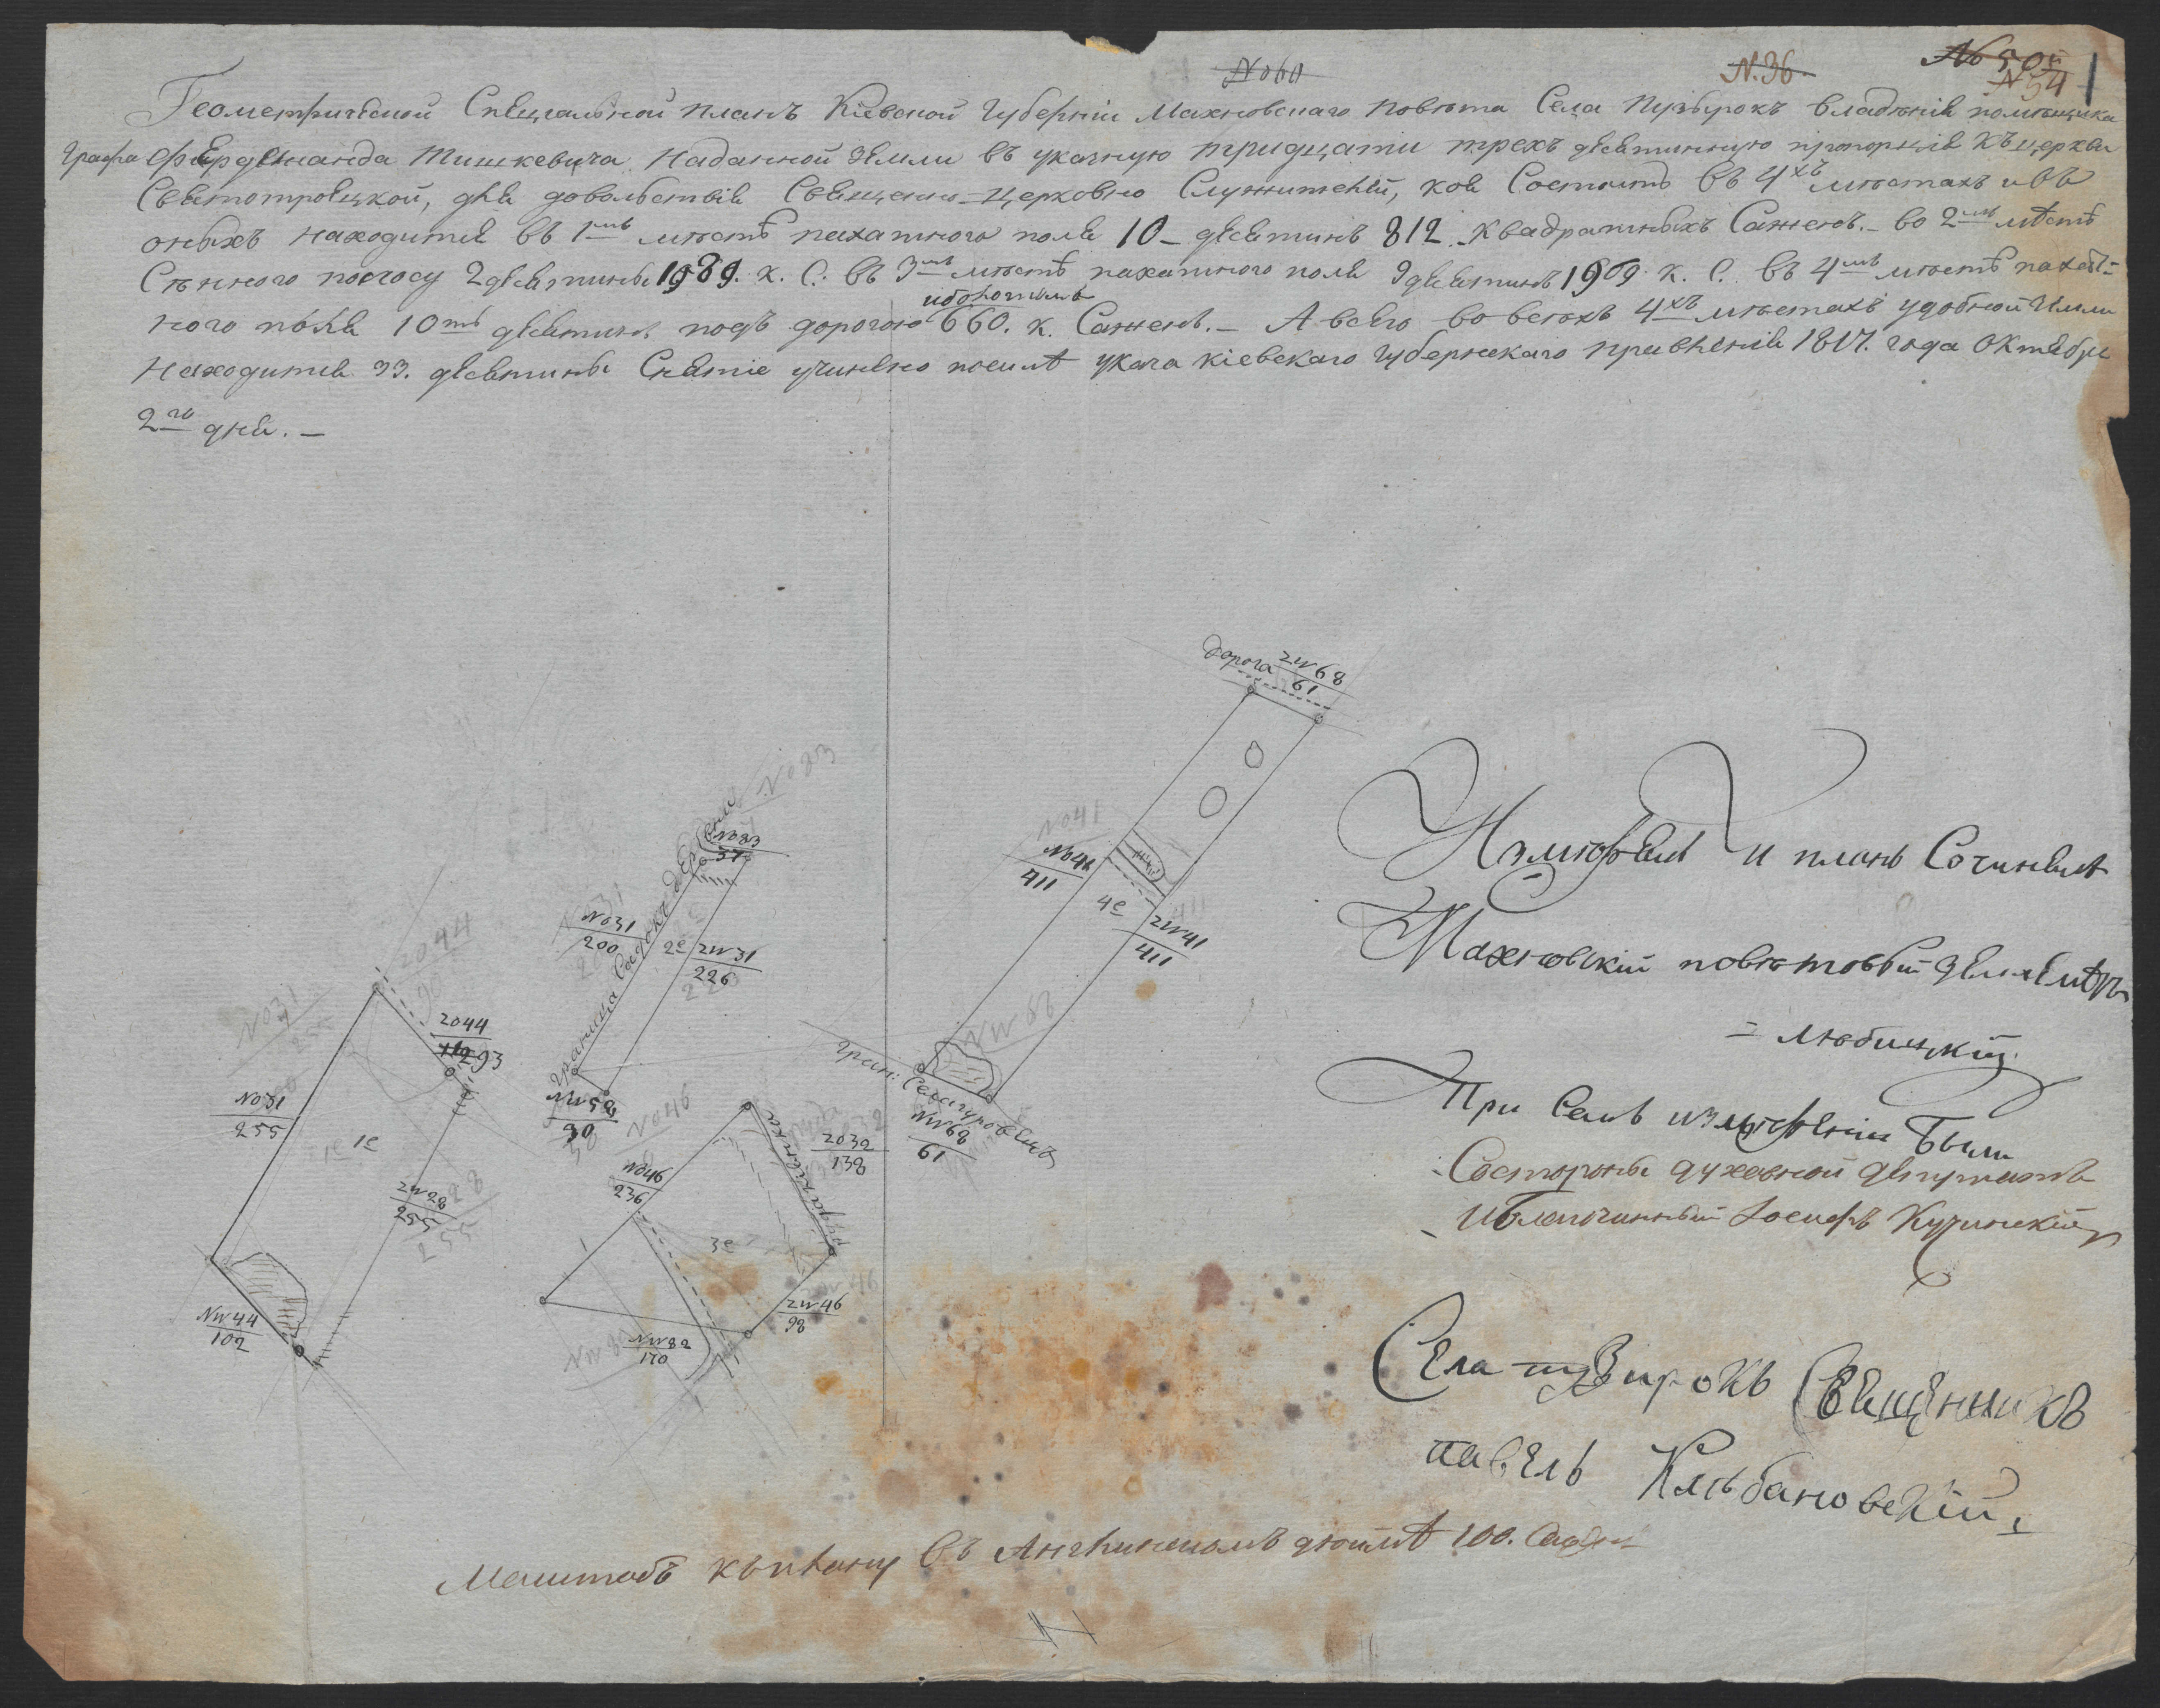 № 60
N. 36
№ 50й
N 54
Геометрической Специальной планъ Кіевской Губерніи Махновскаго повѣта Села Пузырокъ владѣнія помѣщика
Графа Фердинанда Тишкевича Наданной земли въ указную тридцати трехъ десятинную пропорцію къ церкви
Святотроицкой, для довольствія Священно-церковно Служителей, коя Состоитъ въ 4хъ мѣстахъ и въ
оныхъ находится въ 1мъ мѣстѣ пахатного поля 10 - десятинъ 812 квадратныхъ Саженъ. - во 2мъ мѣстѣ
Сѣнного покосу 2 десятины 1989. к. С. въ 3мъ мѣстѣ пахатного поля 9 десятинъ 1909. к. С. въ 4мъ мѣстѣ пахат-
ного поля 10ть десятинъ подъ дорогою и болотомъ 660. к. Саженъ. - А всего во всѣхъ 4хъ мѣстахъ удобной земли
Находится 33. десятины Снятіе учинено по силѣ указа кіевскаго Губернскаго правленія 1817. года Октября
2го дня. -
дорога
ZW 68
61
NO 41
NO 41
411
4е
ZW 41
411
NW 68
NW 68
61
NO 83
NO 83
37
NO 31
NO 31
200
2е
ZW 31
226
Граница
NW 59
30
ZO 44
ZO 44
93
NO 31
NO 31
255
1е 1е
ZW 28
255
255
NW 44
102
NO 46
NO 46
236
ZO 32
138
3е
ZW 46
98
NW 82
170
Измѣрялъ и планъ Сочинялъ
Махновскій повѣтовый Землемѣръ
- Любицкій
При Семъ измѣреніи Были
Состороны духовной депутатъ
И благочинный Іосифъ Кучинскій
Села пузирокъ Священникъ
павелъ Клѣбановскій.
Маштабъ къ плану въ Англинскомъ дюймѣ 100. Саженъ